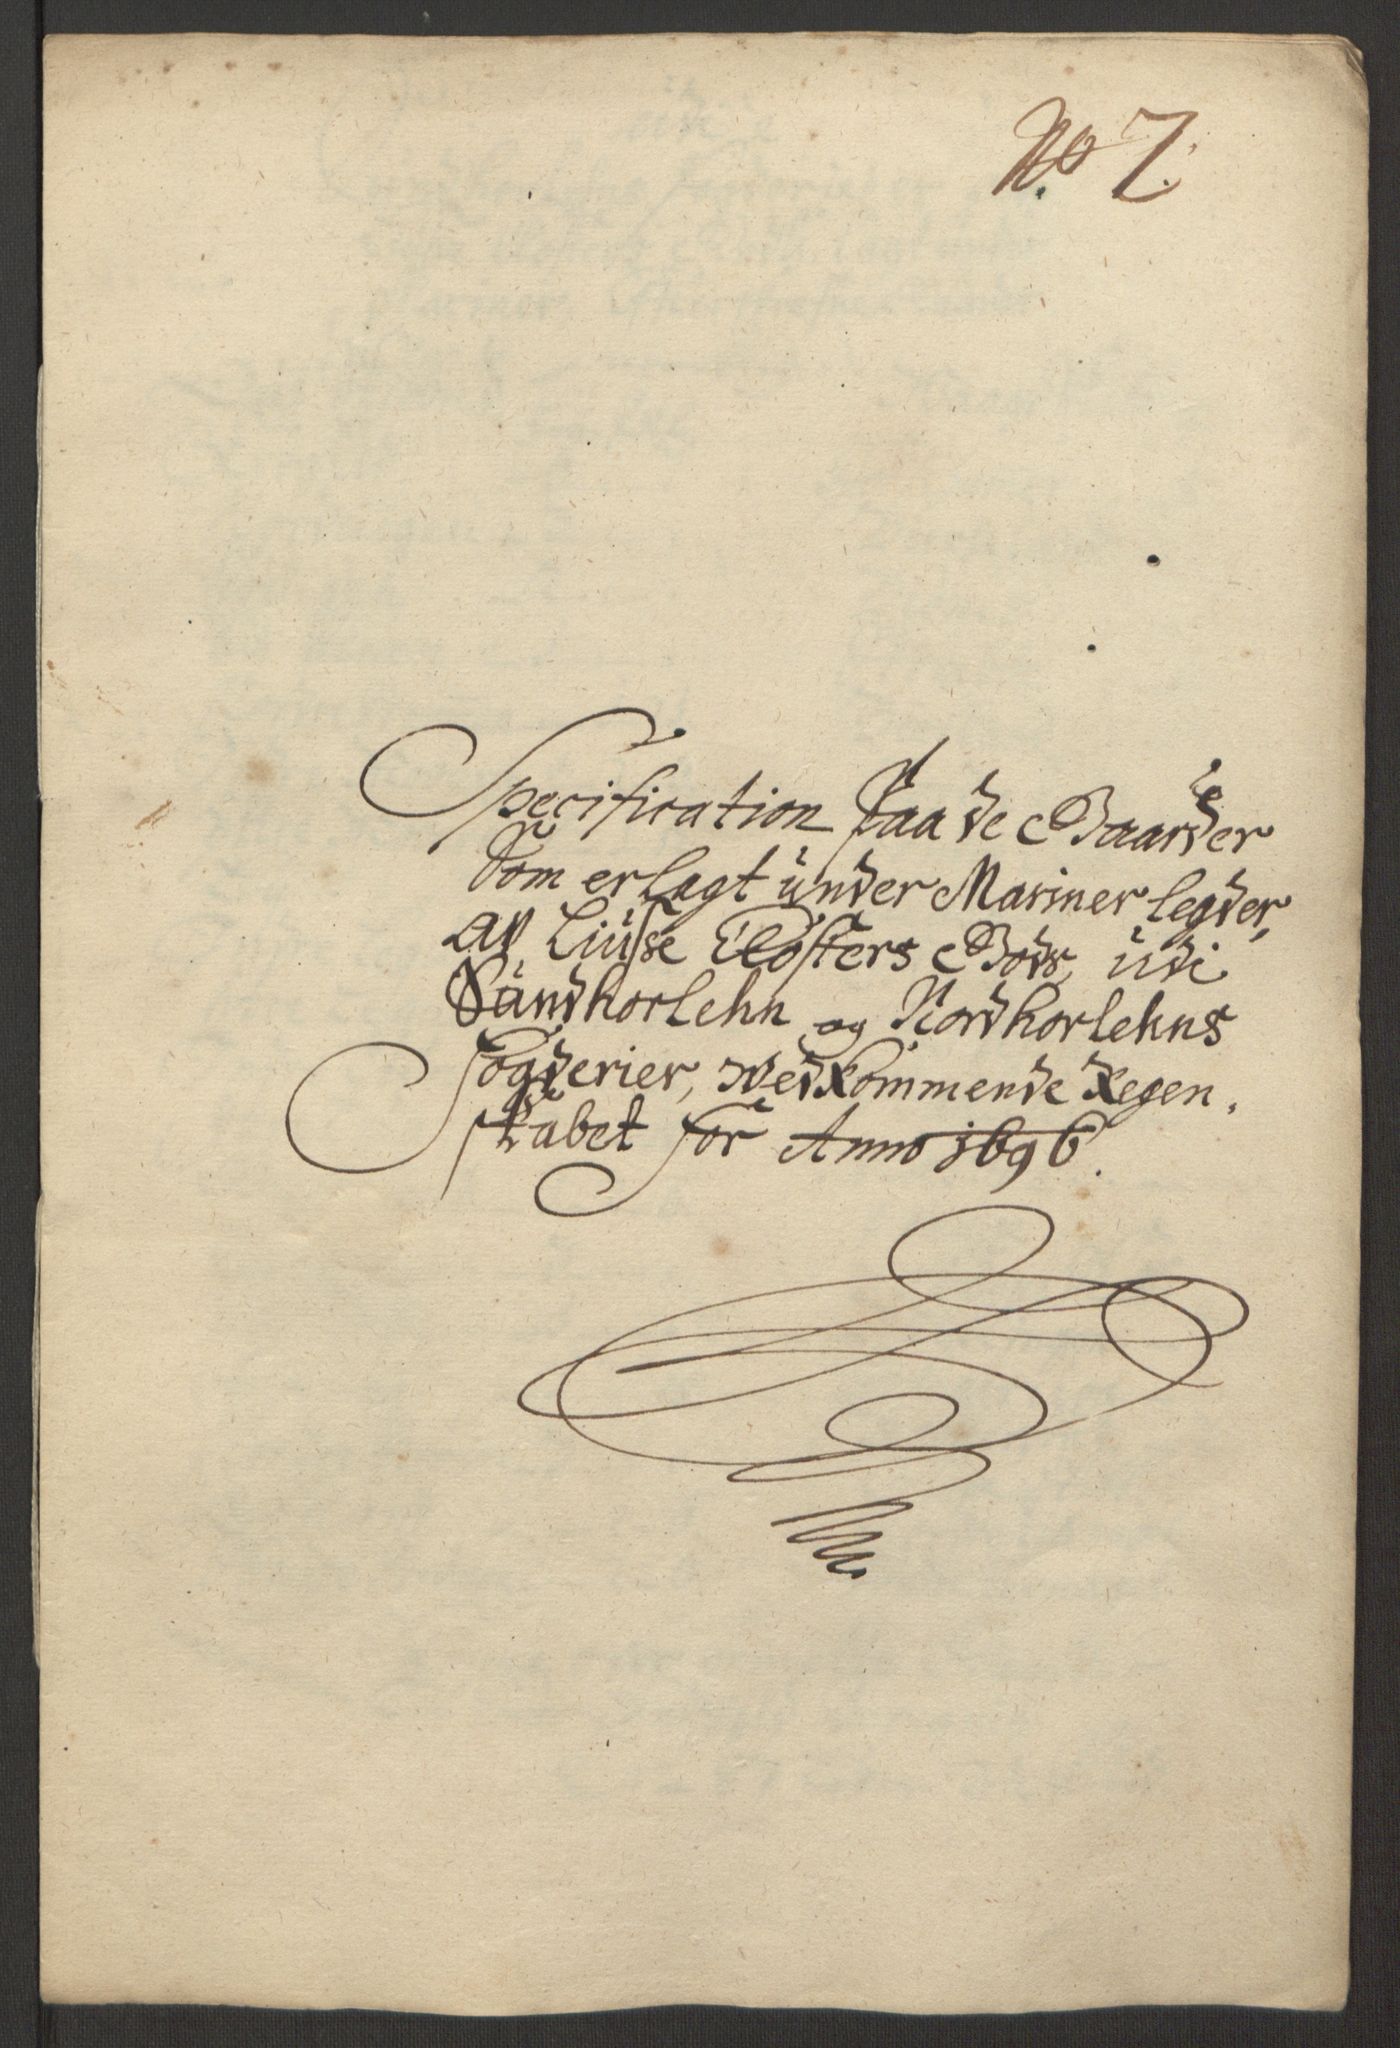 No 7.
Specification Paa de Gaarder
Som er lagt under Mariner legder,
af Liuse Closters Gods, udi
Sundhorlehn og Nordhorlehns
fogderier, Vedkommende Regen,
skabet for Anno 1696.